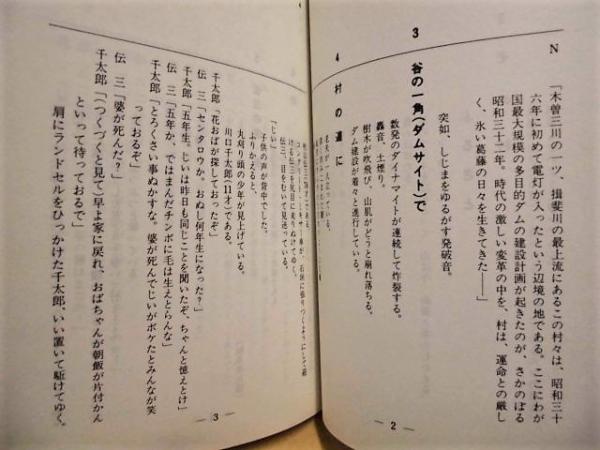 N　「木曽三川の一ツ、揖斐川の最上流にあるこの村々は、昭和三十
六年に初めて電灯が入ったという辺境の地である。ここにわが
国最大規模の多目的ダムの建設計画が起きたのが、さかのぼる
昭和三十二年。時代の激しい変革の中を、村は、運命との厳し
く、永い葛藤の日々を生きてきた――」
突如、しじまをゆるがす発破音。
3　谷の一角(ダムサイト)で
数発のダイナマイトが連続して炸裂する。
轟音、土煙り。
樹木が吹飛び、山肌がどうと崩れ落ちる。
ダム建設が着々と進行している。
― 2 ―
4　村の道に
「じい」
子供の声が背中でした。
ふりかえると、
丸刈り頭の少年が見上げている。
川口千太郎(11才)である。
千太郎「花おばが探しておったぞ」
伝　三「センタロウか。おぬし何年生になった?」
千太郎「五年生。じいは昨日も同じことを聞いたぞ、ちゃんと憶えとけ」
伝　三「五年か、ではまんだチンポに毛は生えとらんな」
千太郎「とろくさい事ぬかすな。婆が死んでじいがボケたとみんなが笑
っておるぞ」
伝　三「婆が死んだ?」
千太郎「(つくづくと見て)早よ家に戻れ、おばちゃんが朝飯が片付かん
といって待っておるで」
肩にランドセルをひっかけた千太郎、いい置いて駆けてゆく。
― 3 ―